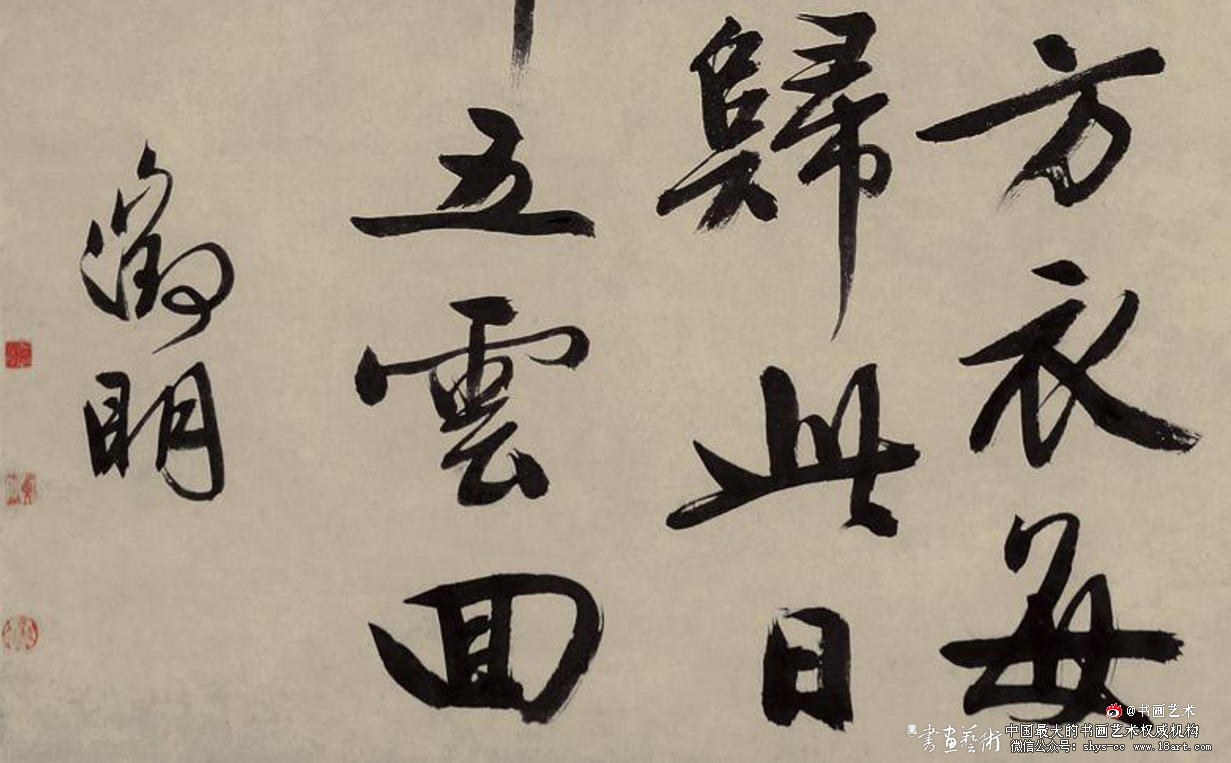 方衣每
歸此日
五雲回
徵明
@书画艺术
書画藝術
中国最大的书画艺术权威机构
微信公众号：shys-cc www.18art.com